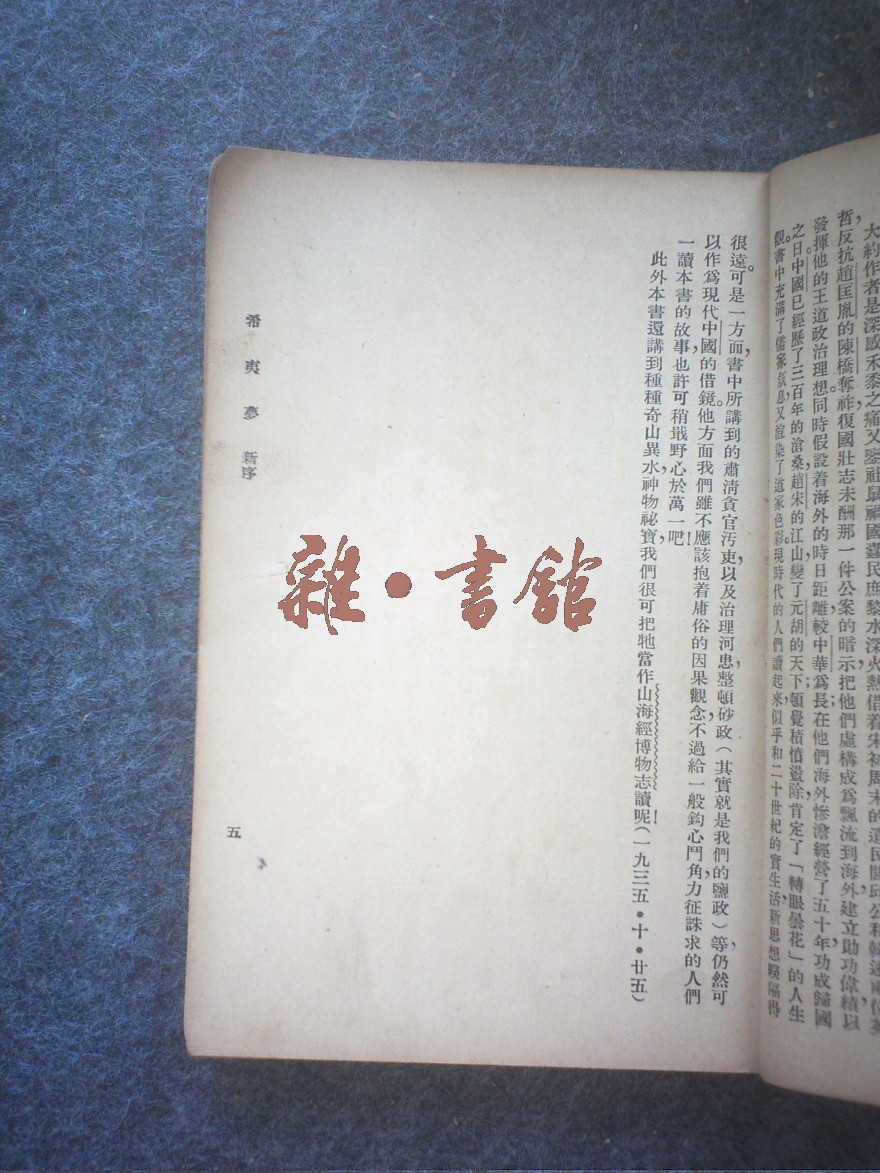 大約作者是深感禾黍之痛，又鑒社鼠禍國，蠶民庶黎，水深火熱，借着宋初周末的遺民閭邱公和韓速兩位英
哲，反抗趙匡胤的陳橋奪祚，復國壯志未酬那一件公案的暗示，把他們虛構成爲飄流到海外建立勛功偉績，以
發揮他的王道政治理想。同時假設着海外的時日距離較中華爲長，在他們海外慘澹經營了五十年，功成歸國
之日，中國已經歷了三百年的滄桑，趙宋的江山變了元胡的天下，頓覺積憤盪除，肯定了「轉眼曇花」的人生
觀。書中充滿了儒家氣息，又渲染了道家色彩。現時代的人們讀起來，似乎和二十世紀的實生活新思想暌隔得
很遠。可是一方面，書中所講到的肅清貪官汚吏，以及治理河患，整頓砂政（其實就是我們的鹽政）等，仍然可
以作爲現代中國的借鏡。他方面，我們雖不應該抱着庸俗的因果觀念，不過給一般鈎心鬥角，力征誅求的人們
一讀本書的故事，也許可稍戢野心於萬一吧！
此外本書還講到種種奇山異水，神物祕寶，我們很可把牠當作山海經博物志讀呢！（一九三五•十•廿五）
希夷夢 新序
五
雜•書館